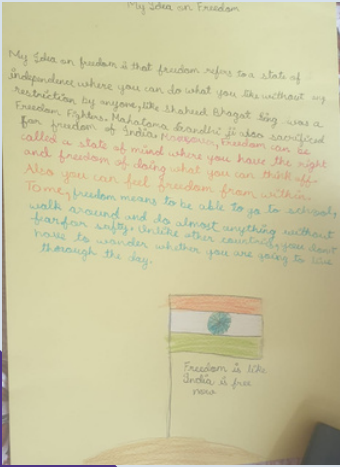 My Idea on Freedom
My Idea on freedom is that freedom refers to a state of
independence where you can do what you like without any
restriction by anyone, like Shaheed Bhagat Sing. was a
Freedom Fighters. Mahatama Gandhi ji also sacrificed
for freedom of India. Moreover, Freedom can be
called a state of mind where you have the right
and freedom of doing what you can think off.
Also you can feel freedom from within.
To me, freedom means to be able to go to school,
walk around and do almost anything without
fear for safty. Unlike other countries, you don't
have to wonder whether you are going to live
thorough the day.
Freedom is like
India is free
now